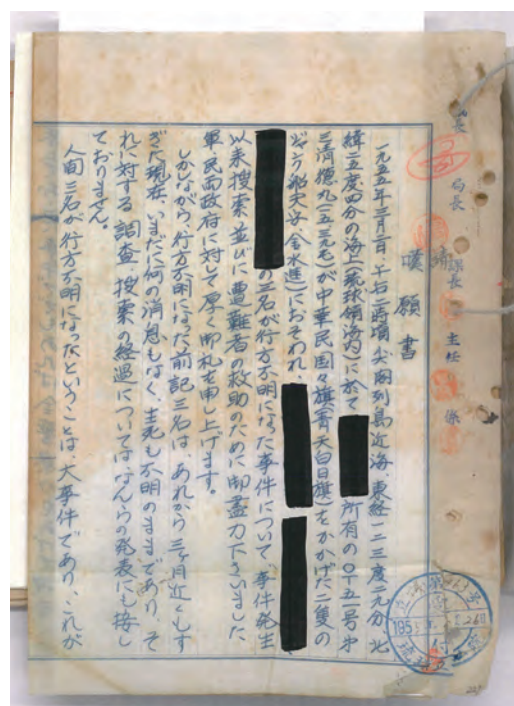 局長
局長
課長
主任
係
嘆願書
一九五五年三月二日、午后二時頃 尖閣列島近海 東経一二三度二九分 北
緯二五度四分の海上(琉球領海内)に於て 所有の〇十五一号 才
三清徳丸(一五三九屯)が中華民国々旗(青天白日旗)をかかげた二隻の
ジャンク船夫々(金水進)におそわれ、
の三名が行方不明になった事件について、事件発生
以来捜索並びに遭難者の救助のために御盡力下さいました、
軍民両政府に対して厚く御礼を申し上げます。
しかしながら、行方不明になった前記三名は、あれから三ヶ月近くもす
ぎた現在、いまだに何の消息もなく、生死も不明のままであり、そ
れに対する 調査、捜索の経過については、なんらの発表にも接し
ておりません。
人間三名が行方不明になったということは、大事件であり、これが